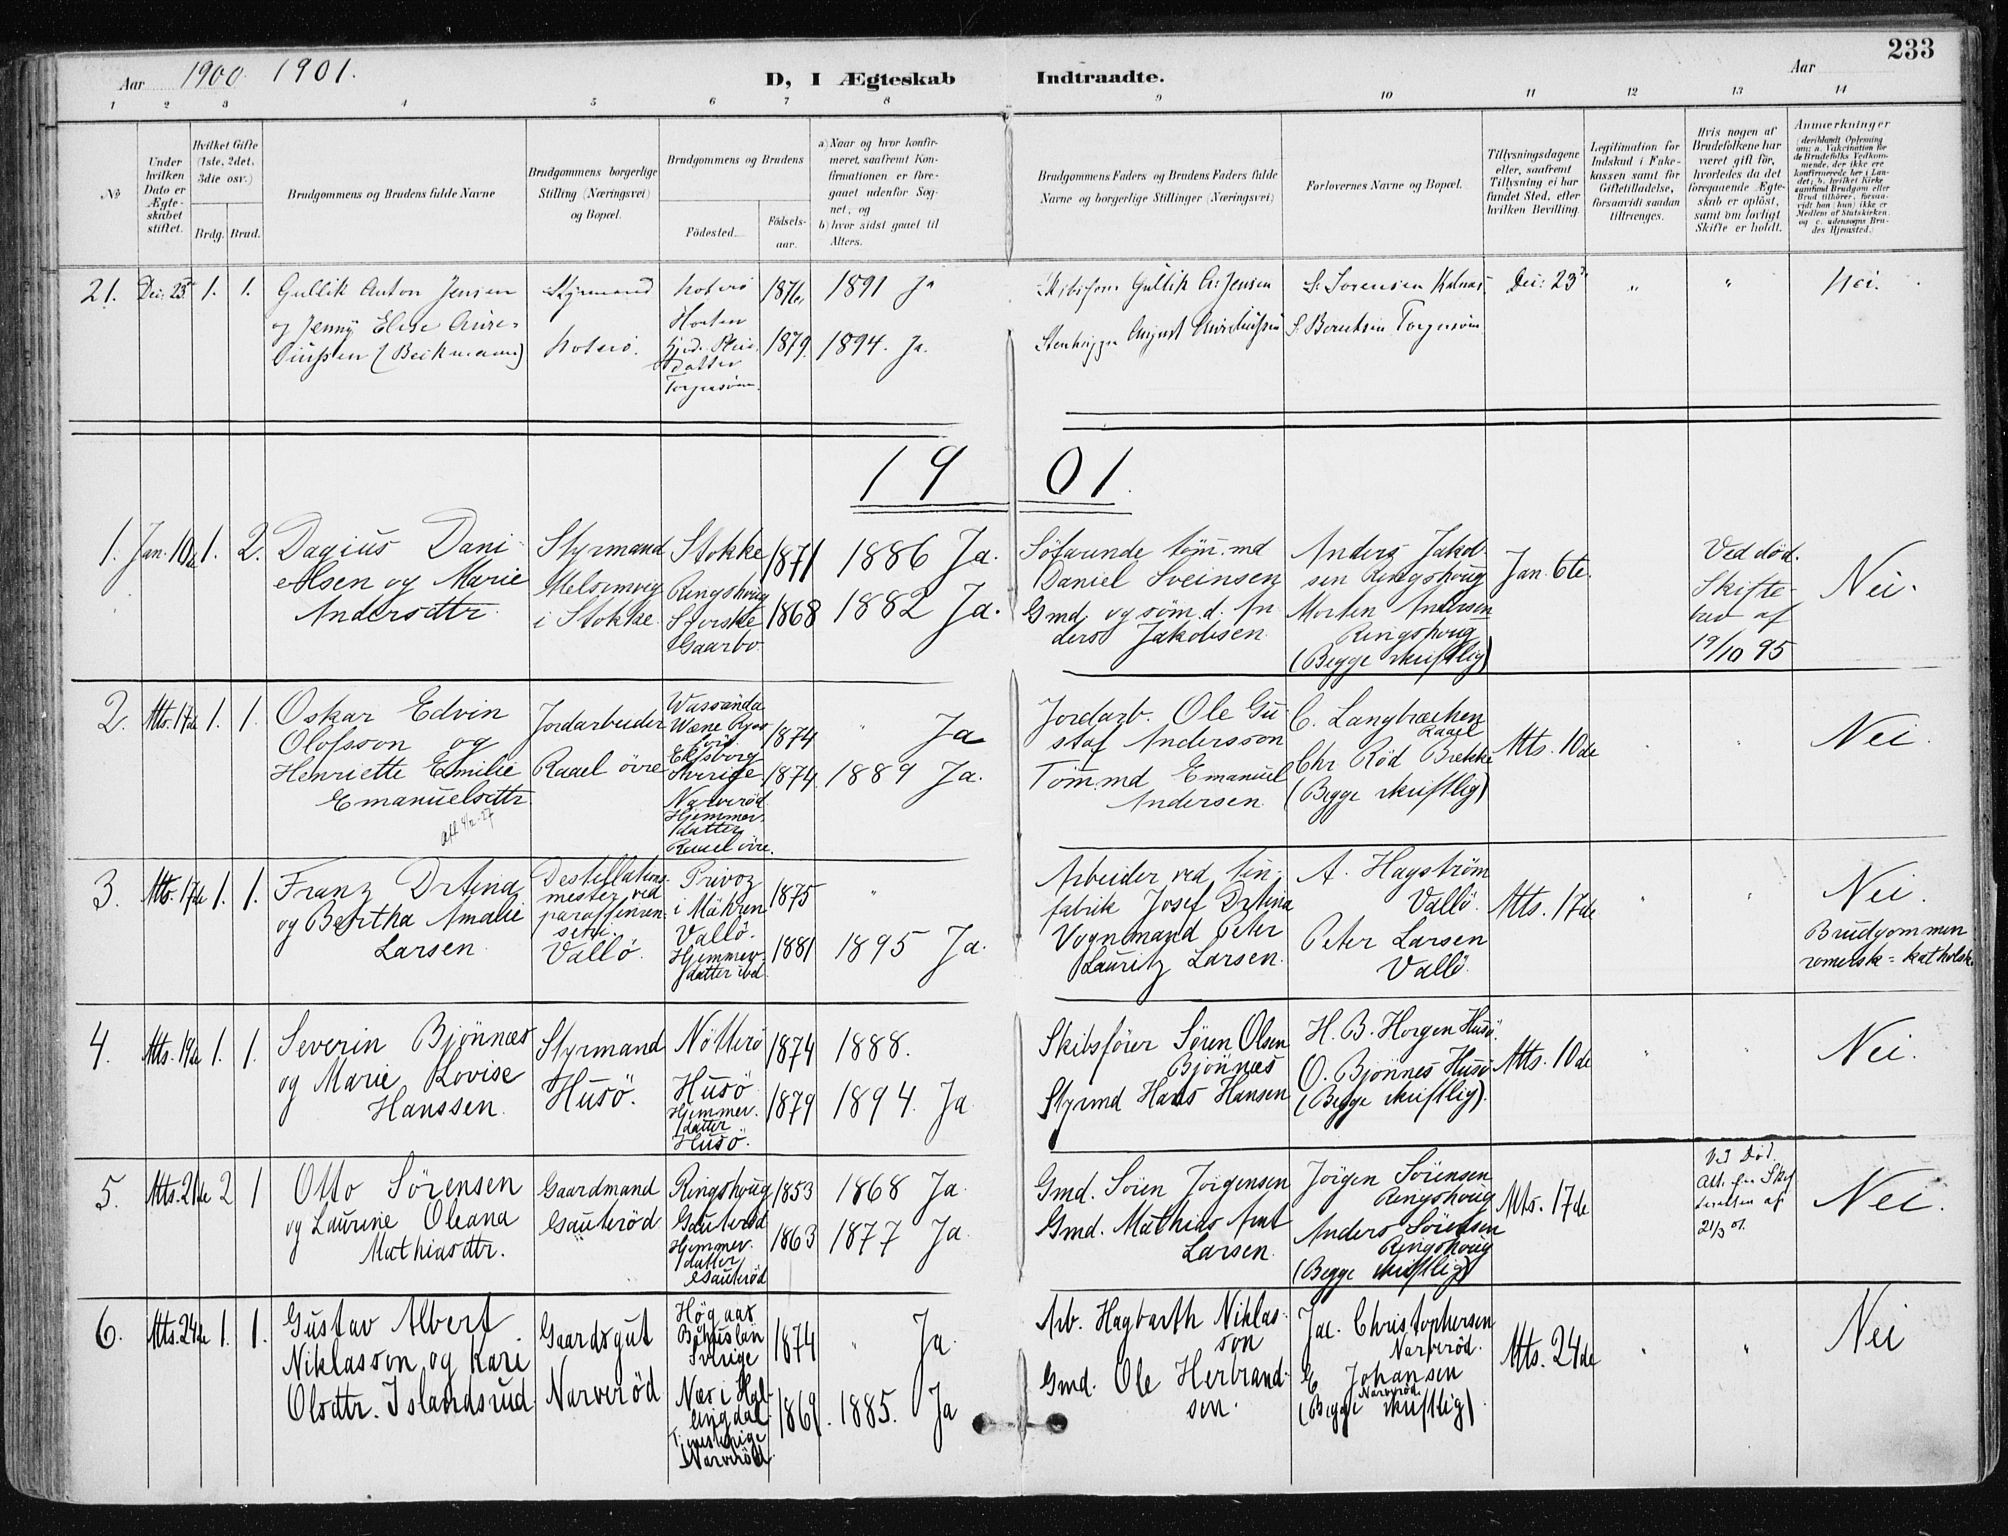 233
Aar 1900 1901.
D, I Ægteskab Indtraadte.
Aar
1 2 3 4 5 6 7 8 9 10 11 12 13 14
No
Under hvilken Dato er Ægteskabet stiftet.
Hvilket Gifte (1ste, 2det, 3die osv.)
Brdg. Brud.
Brudgommens og Brudens fulde Navne
Brudgommens borgerlige Stilling (Næringsvei) og Bopæl.
Brudgommens og Brudens
Fødested.
Fødselsaar.
a) Naar og hvor konfirmeret, saafremt Konfirmationen er foregaaet udenfor Sognet, og
b) hvor sidst gaaet til Alters.
Brudgommens Faders og Brudens Faders fulde Navne og borgerlige Stillinger (Næringsvei)
Forlovernes Navne og Bopæl.
Tillysningsdagene eller, saafremt Tillysning ei har fundet Sted, efter hvilken Bevilling.
Legitimation for Indskud i Enkekassen samt for Giftetilladelse, forsaavidt saadan tiltrænges.
Hvis nogen af Brudefolkene har været gift før, hvorledes da det foregaaende Ægteskab er opløst, samt om lovligt Skifte er holdt.
Anmærkninger
(deriblandt Oplysning om: a. Vakcination for de Brudefolks Vedkommende, der ikke ere konfirmerede her i Landet; b. hvilket Kirkesamfund Brudgom eller Brud tilhører, forsaavidt han (hun) ikke er Medlem af Statskirken, og c. udensogns Brudes Hjemsted.)
21. 1. 1. Gullik Anton Jensen
og Jenny Elise
(Beckmann)
Styrmand
Horten
Datter
1879
1891 Ja
1894. Ja.
Gullik Jensen
August
S. Sørensen
S. Berntsen
Nei.
1901.
1. Jan. 10de 1. 2.
Dagius Dani-
elsen og Marie
Andersdtr.
Styrmand
Melsomvig
i Stokke
Stokke
Ringshoug
Gaarbr.
1871
1868
1886 Ja.
1882 Ja.
Søfarende tøm.md
Daniel Sveinsen
Gmd og søm.d. An
ders Jakobsen
Anders Jakob-
sen Ringshoug
Morten Andersen
Ringshoug
(Begge skriftlig)
Jan. 6te.
Ved død.
Skifte-
af
19/10 95
Nei.
2. Mts. 17de 1. 1.
Oskar Edvin
Olofsson og
Henriette Emilie
Emanuelsdtr.
Jordarbeider
Raael övre
Elfsborg
Sverige
Narverød
Hjemmev.
datter
Raael övre.
1874
1874
" Ja
1889 Ja.
Jordarb. Ole Gu-
staf Andersson
Tømmd Emanuel
Andersen
C. Langbrækken
Raael
Chr Rød Brekke
(Begge skriftlig)
Mts. 10de
Nei.
3. Mts. 17de 1. 1.
Franz Drtina
og Bertha Amalie
Larsen
Destillations-
mester ved
paraffinen
Vallö.
Privoz
i Mähren
Vallö.
Hjemmev.
datter ibd.
1875
1881
"
1895 Ja.
Arbeider ved tin-
fabrik Josef Drtina
Vognmand Peter
Lauritz Larsen
A. Hagström
Vallö.
Peter Larsen
Vallö.
Mts. 17de
Nei.
Brudgommen
romersk=katholsk.
4. Mts. 19de 1. 1.
Severin Bjönnes
og Marie Lovise
Hanssen.
Styrmand
Husö.
Nötterö
Husö
Hjemmev.
datter
Husö.
1874
1879
1888.
1894. Ja
Skibsfører Sören Olsen
Bjönnes
Styrmd Hans Hansen
H. B. Horgen Husö
O. Bjönnes Husö
(Begge skriftlig).
Mts. 10de
Nei.
5. Mts. 21de 2 1
Otto Sörensen
og Laurine Oleana
Mathiasdtr.
Gaardmand
Gauteröd
Ringshoug
Gauteröd
Hjemmev.
datter
Gauteröd
1853
1863
1868 Ja.
1877 Ja.
Gmd. Sören Jörgensen
Gmd. Mathias Arnt
Larsen
Jörgen Sörensen
Ringshoug
Anders Sörensen
Ringshoug
(Begge skriftlig)
Mts. 17de
Ved Død.
Att. fra Skif
teretten af
21/3 01.
Nei.
6. Mts. 24de 1. 1.
Gustav Albert
Niklasson og Kari
Olsdtr. Islandsrud
Gaardsgut
Narveröd
Högaas
Bohuslän
Sverige
Næs i Hal-
lingdal
Tjenestepige
Narveröd
1874
1869.
" Ja.
1885. Ja
Arb. Hagbarth Niklas-
son
Gmd. Ole Herbrand-
sen.
Jac. Christophersen
Narveröd.
E. Johansen
Narveröd
(Begge skriftlig)
Mts. 24de
Nei